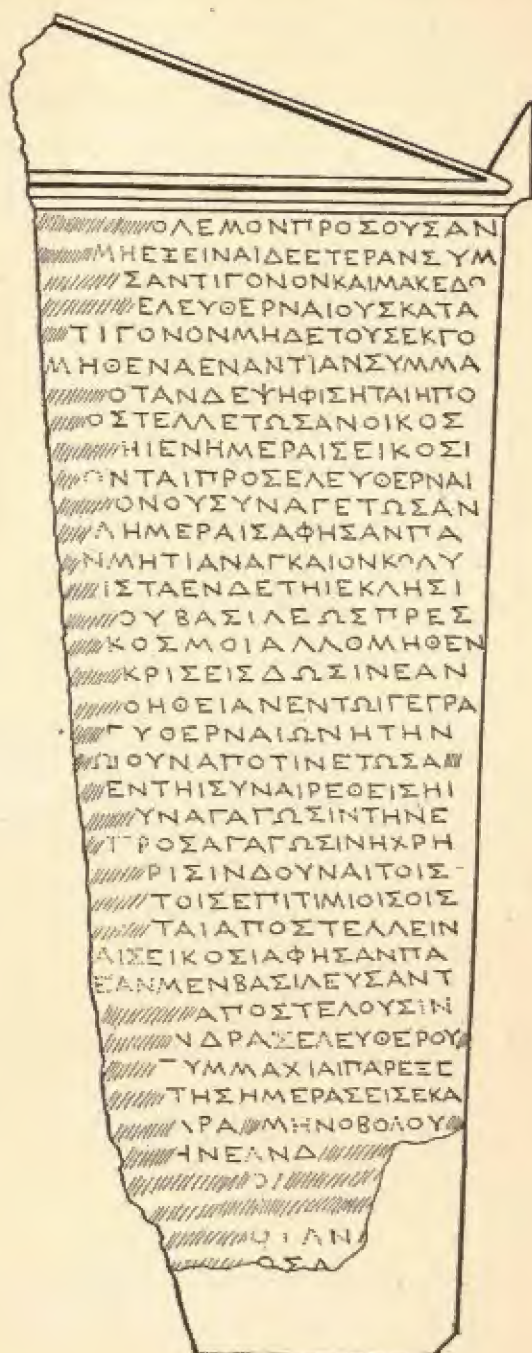 ΟΛΕΜΟΝΠΡΟΣΟΥΣΑΝ
ΜΗΕΞΕΙΝΑΙΔΕΕΤΕΡΑΝΣΥΜ
ΣΑΝΤΙΓΟΝΟΝΚΑΙΜΑΚΕΔΟ
ΕΛΕΥΘΕΡΝΑΙΟΥΣΚΑΤΑ
ΤΙΓΟΝΟΝΜΗΔΕΤΟΥΣΕΚΓΟ
ΜΗΘΕΝΑΕΝΑΝΤΙΑΝΣΥΜΜΑ
ΟΤΑΝΔΕΨΗΦΙΣΗΤΑΙΗΠΟ
ΟΣΤΕΛΛΕΤΩΣΑΝΟΙΚΟΣ
ΗΙΕΝΗΜΕΡΑΙΣΕΙΚΟΣΙ
ΟΝΤΑΙΠΡΟΣΕΛΕΥΘΕΡΝΑΙ
ΟΝΟΥΣΥΝΑΓΕΤΩΣΑΝ
ΛΗΜΕΡΑΙΣΑΦΗΣΑΝΠΑ
ΝΜΗΤΙΑΝΑΓΚΑΙΟΝΚΩΛΥ
ΙΣΤΑΕΝΔΕΤΗΙΕΚΛΗΣΙ
ΟΥΒΑΣΙΛΕΩΣΠΡΕΣ
ΚΟΣΜΟΙΑΛΛΟΜΗΘΕΝ
ΚΡΙΣΕΙΣΔΩΣΙΝΕΑΝ
ΟΗΘΕΙΑΝΕΝΤΩΙΓΕΓΡΑ
ΥΘΕΡΝΑΙΩΝΗΤΗΝ
ΩΙΟΥΝΑΠΟΤΙΝΕΤΩΣΑ
ΕΝΤΗΙΣΥΝΑΙΡΕΘΕΙΣΗΙ
ΥΝΑΓΑΓΩΣΙΝΤΗΝΕ
ΠΡΟΣΑΓΑΓΩΣΙΝΗΧΡΗ
ΡΙΣΙΝΔΟΥΝΑΙΤΟΙΣ
ΤΟΙΣΕΠΙΤΙΜΙΟΙΣΟΙΣ
ΤΑΙΑΠΟΣΤΕΛΛΕΙΝ
ΑΙΣΕΙΚΟΣΙΑΦΗΣΑΝΠΑ
ΕΑΝΜΕΝΒΑΣΙΛΕΥΣΑΝΤ
ΑΠΟΣΤΕΛΟΥΣΙΝ
ΝΔΡΑΣΕΛΕΥΘΕΡΟΥ
ΥΜΜΑΧΙΑΙΠΑΡΕΞΕ
ΤΗΣΗΜΕΡΑΣΕΙΣΕΚΑ
ΡΑ ΜΗΝΟΒΟΛΟΥ
ΗΝΕΑΝΔ
ΟΙ
ΟΤΑΝ
ΩΣΑ